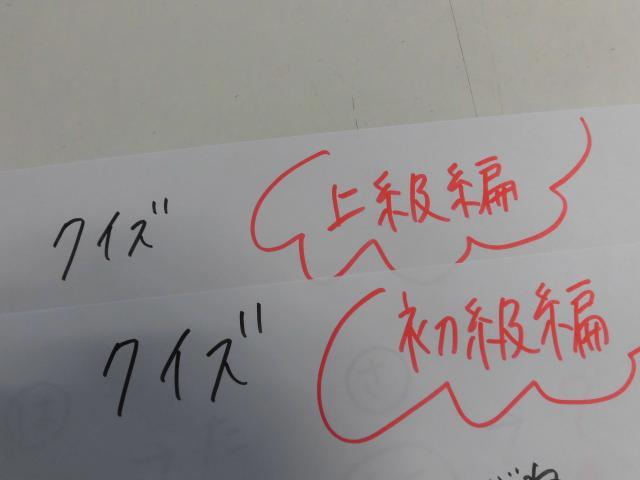 クイズ 上級編
クイズ 初級編